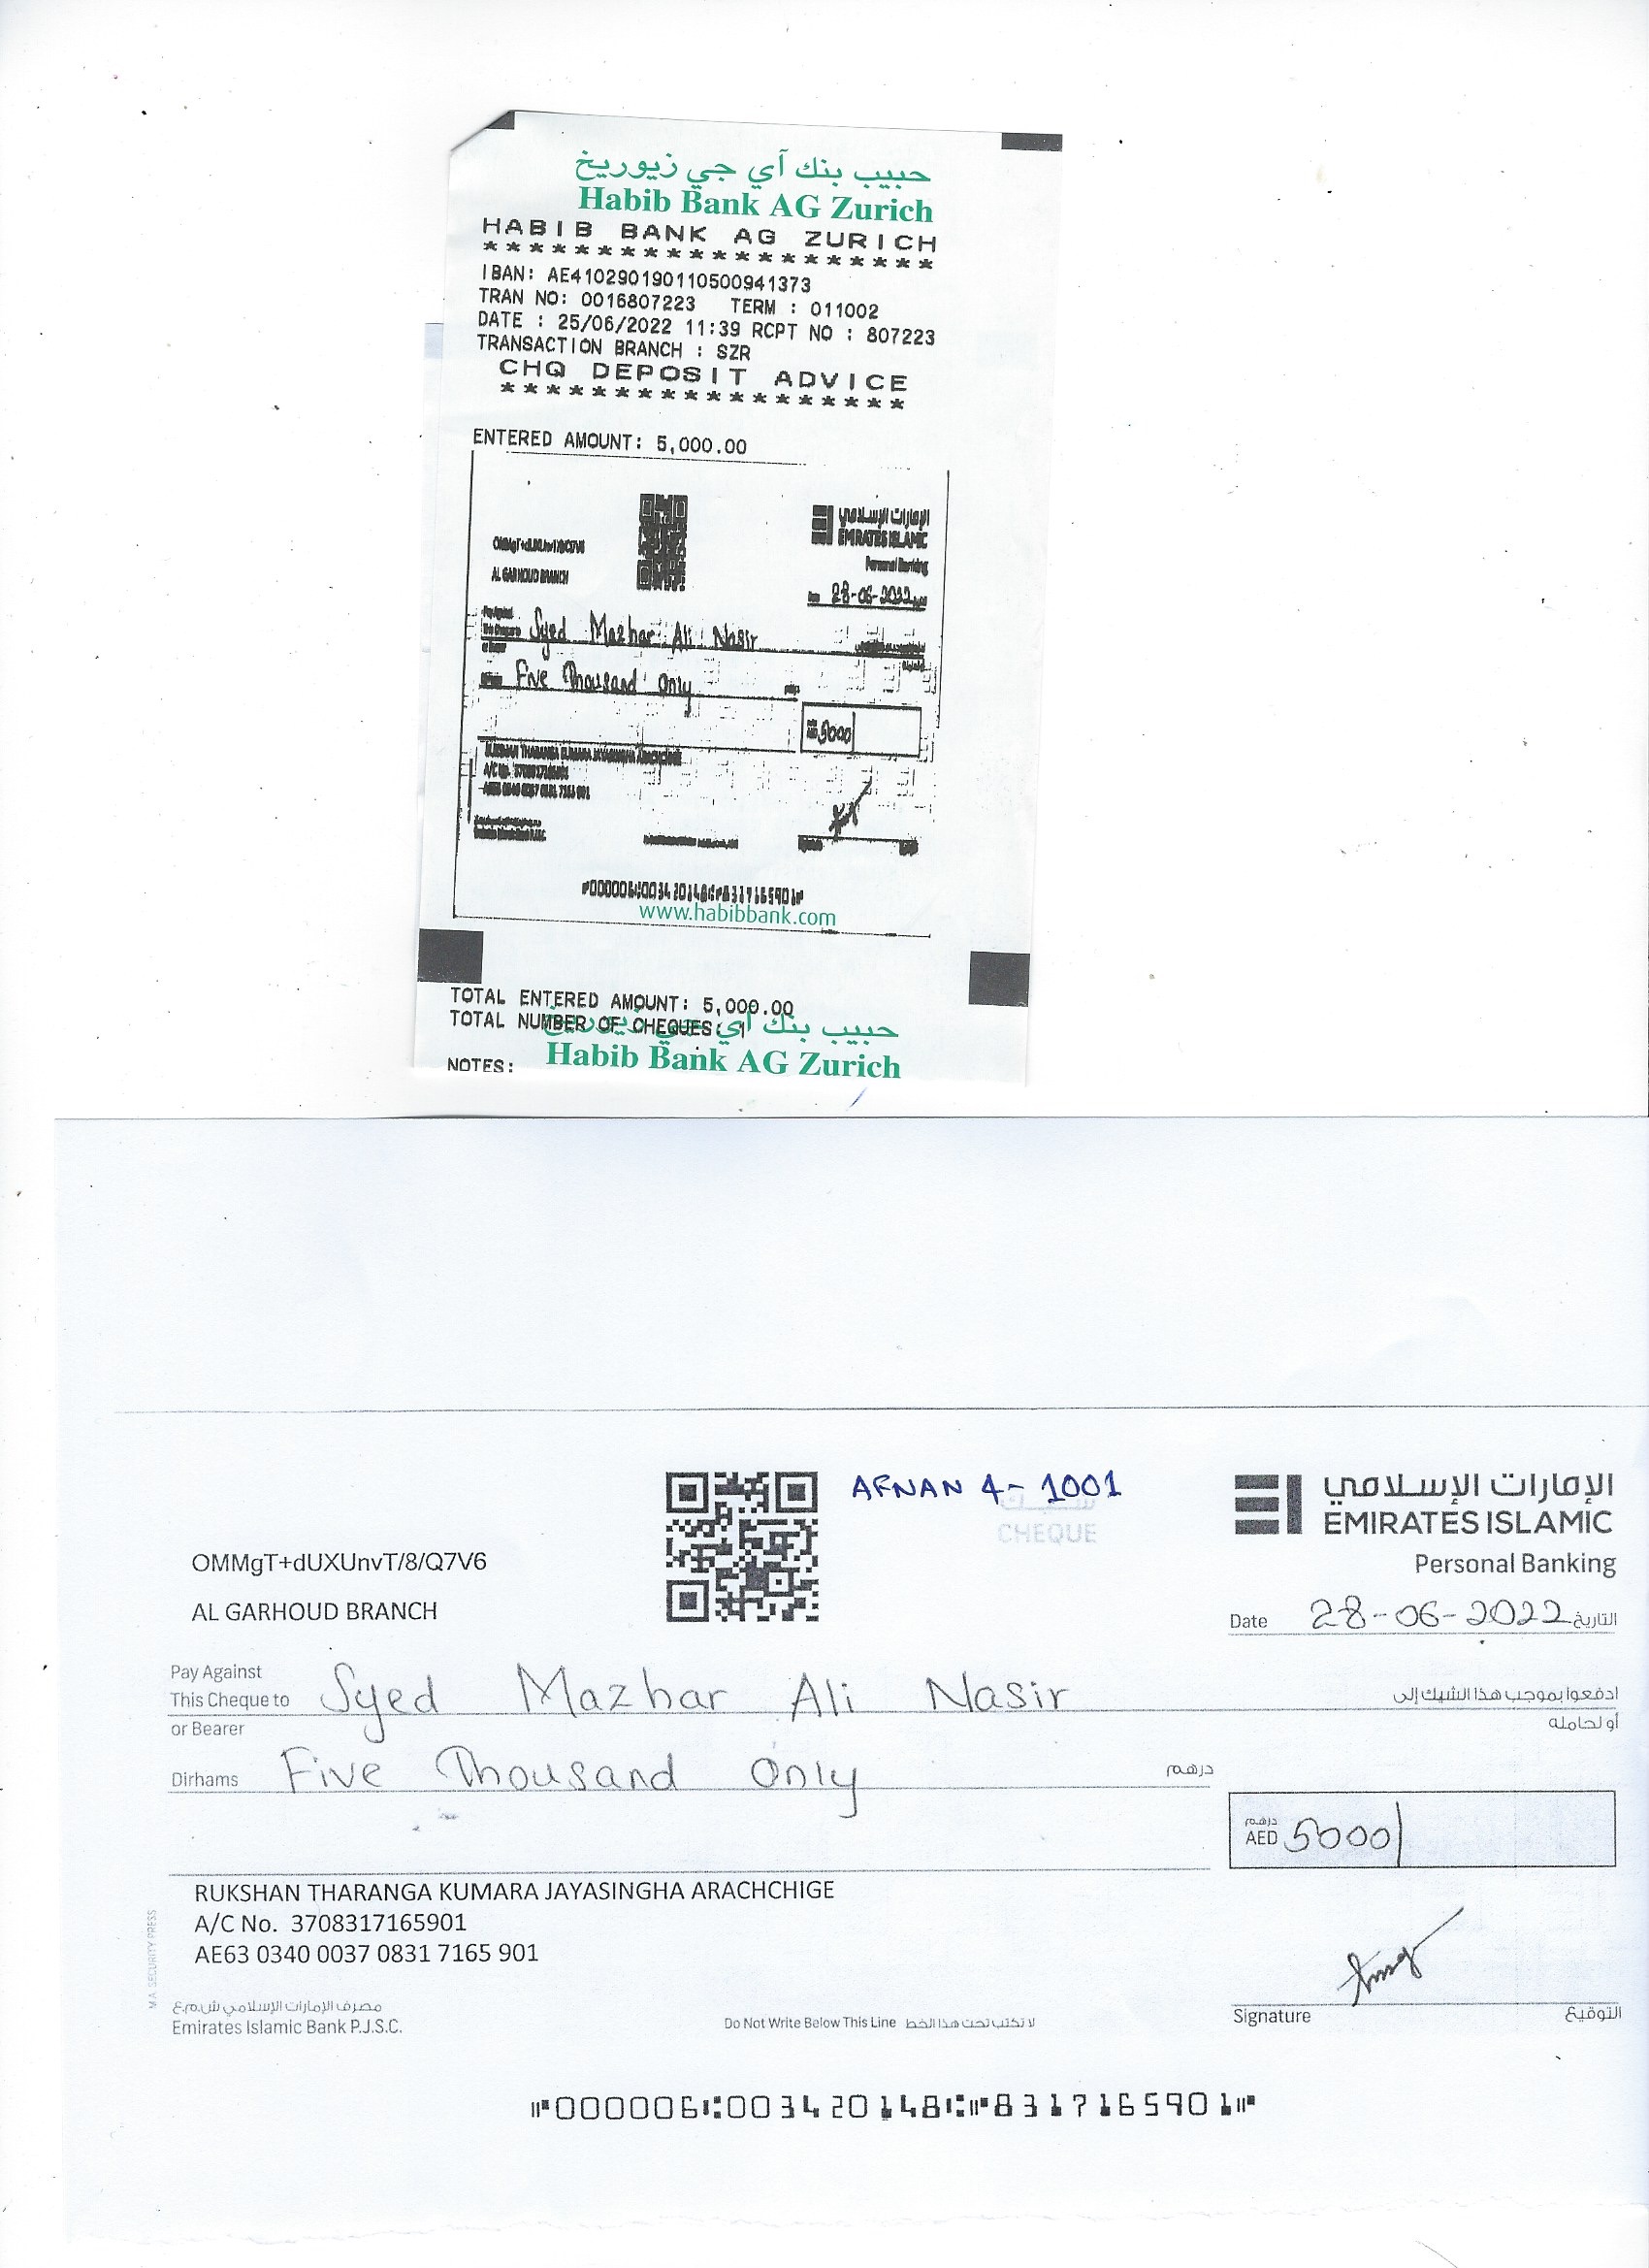 حبيب بنك آي جي زيوريخ
Habib Bank AG Zurich
HABIB BANK AG ZURICH
********************
IBAN: AE410290190110500941373
TRAN NO: 0016807223 TERM : 011002
DATE : 25/06/2022 11:39 RCPT NO : 807223
TRANSACTION BRANCH : SZR
CHQ DEPOSIT ADVICE
******************
ENTERED AMOUNT: 5,000.00
الإمارات الإسلامي
EMIRATES ISLAMIC
Personal Banking
AL GARHOUD BRANCH
Date 28-06-2022
Syed Mazhar Ali Nasir
Five Thousand Only
AED 5000
www.habibbank.com
TOTAL ENTERED AMOUNT: 5,000.00
TOTAL NUMBER OF CHEQUES: 1
حبيب بنك آي جي زيوريخ
NOTES:
Habib Bank AG Zurich
AFNAN 4- 1001
شيك
CHEQUE
الإمارات الإسلامي
EMIRATES ISLAMIC
Personal Banking
OMMgT+dUXUnvT/8/Q7V6
AL GARHOUD BRANCH
Date 28-06-2022 التاريخ
Pay Against
This Cheque to Syed Mazhar Ali Nasir ادفعوا بموجب هذا الشيك إلى
or Bearer أو لحامله
Dirhams Five Thousand Only درهم
درهم
AED 5000
RUKSHAN THARANGA KUMARA JAYASINGHA ARACHCHIGE
A/C No. 3708317165901
AE63 0340 0037 0831 7165 901
M.A. SECURITY PRESS
مصرف الإمارات الإسلامي ش.م.ع
Emirates Islamic Bank P.J.S.C.
Do Not Write Below This Line لا تكتب تحت هذا الخط
Signature التوقيع
⑈000006⑆003420148⑆⑈8317165901⑈